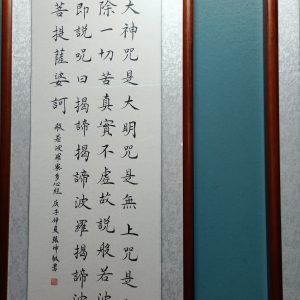 大神咒是大明咒是無上咒是
除一切苦真實不虛故說般若波
即說咒曰揭諦揭諦波羅揭諦波
菩提薩婆訶
般若波羅蜜多心經